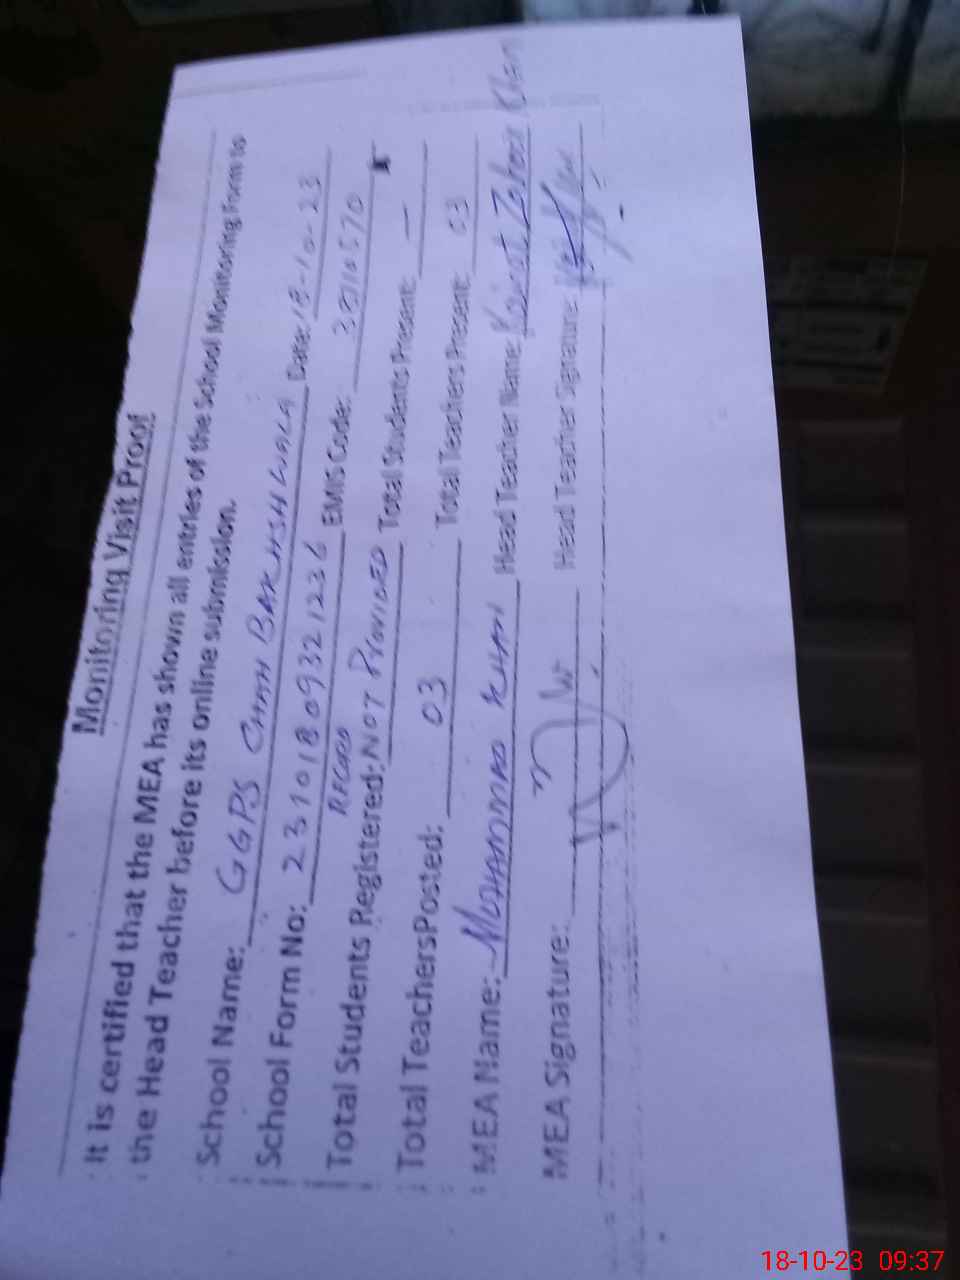 Monitoring Visit Proof
It is certified that the MEA has shown all entries of the School Monitoring Form to
the Head Teacher before its online submission.
School Name: GGPS CHAH BAKHSH WALA Date: 18-10-23
School Form No: 231018093 21236 EMIS Code: 38110570
RECORD
Total Students Registered: NOT PROVIDED Total Students Present: —
Total TeachersPosted: 03 Total Teachers Present: 03
MEA Name: MUHAMMAD KHAN Head Teacher Name: Kainat Zahoor Khan
MEA Signature: Head Teacher Signature:
18-10-23 09:37